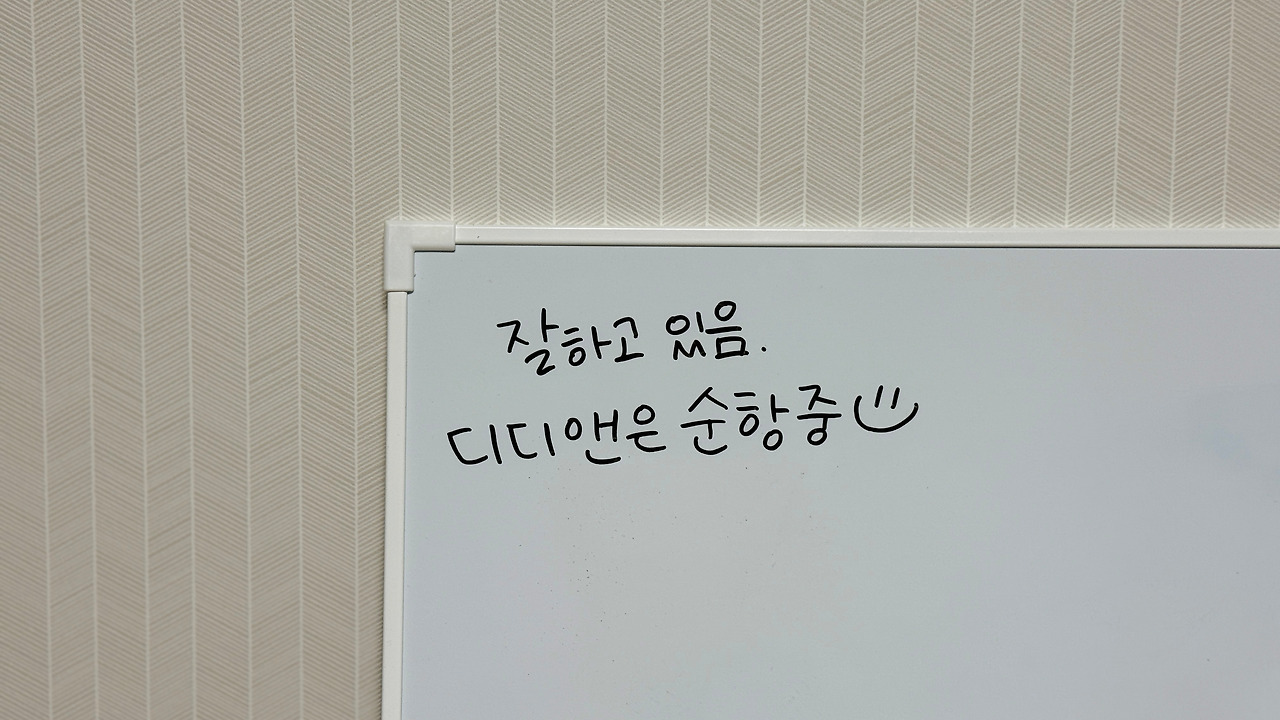 잘하고 있음.
디디앤은 순항중